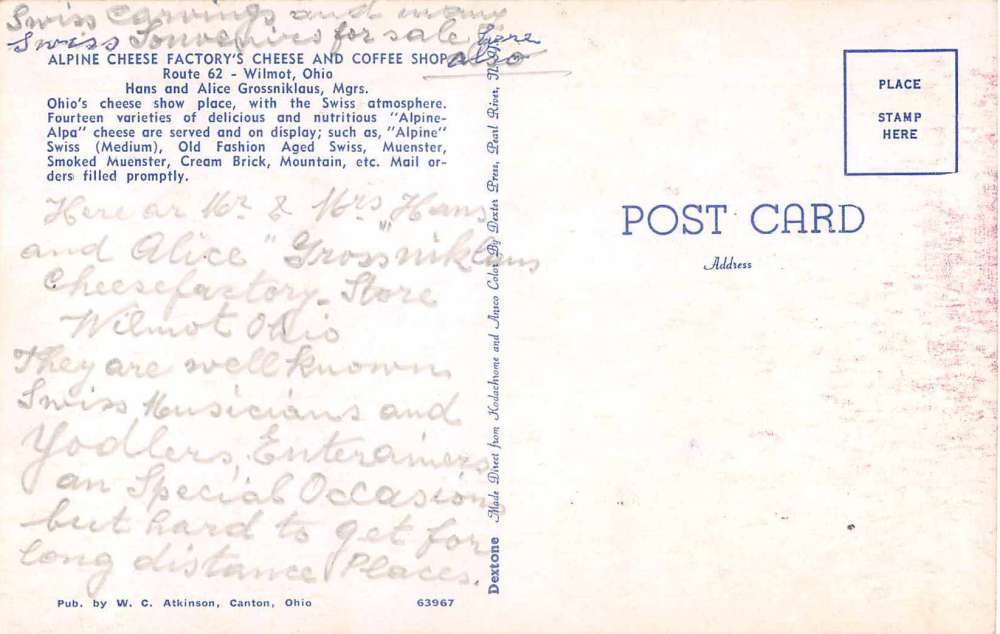 Swiss Carvings and many
Swiss Souvenires for sale here
also
ALPINE CHEESE FACTORY'S CHEESE AND COFFEE SHOP
Route 62 - Wilmot, Ohio
Hans and Alice Grossniklaus, Mgrs.
Ohio's cheese show place, with the Swiss atmosphere.
Fourteen varieties of delicious and nutritious "Alpine-
Alpa" cheese are served and on display; such as, "Alpine"
Swiss (Medium), Old Fashion Aged Swiss, Muenster,
Smoked Muenster, Cream Brick, Mountain, etc. Mail or-
ders filled promptly.
Here ar Mr & Mrs "Hans
and Alice" "Grossniklaus
Cheesefactory-Store
Wilmot Ohio
They are well known
Swiss Musicians and
Yodlers, Enterainers
an Special Occasion
but hard to get for
long distance Places.
Pub. by W. C. Atkinson, Canton, Ohio
63967
Dextone Made Direct from Kodachrome and Ansco Color By Dexter Press, Pearl River, N. Y.
PLACE
STAMP
HERE
POST CARD
Address